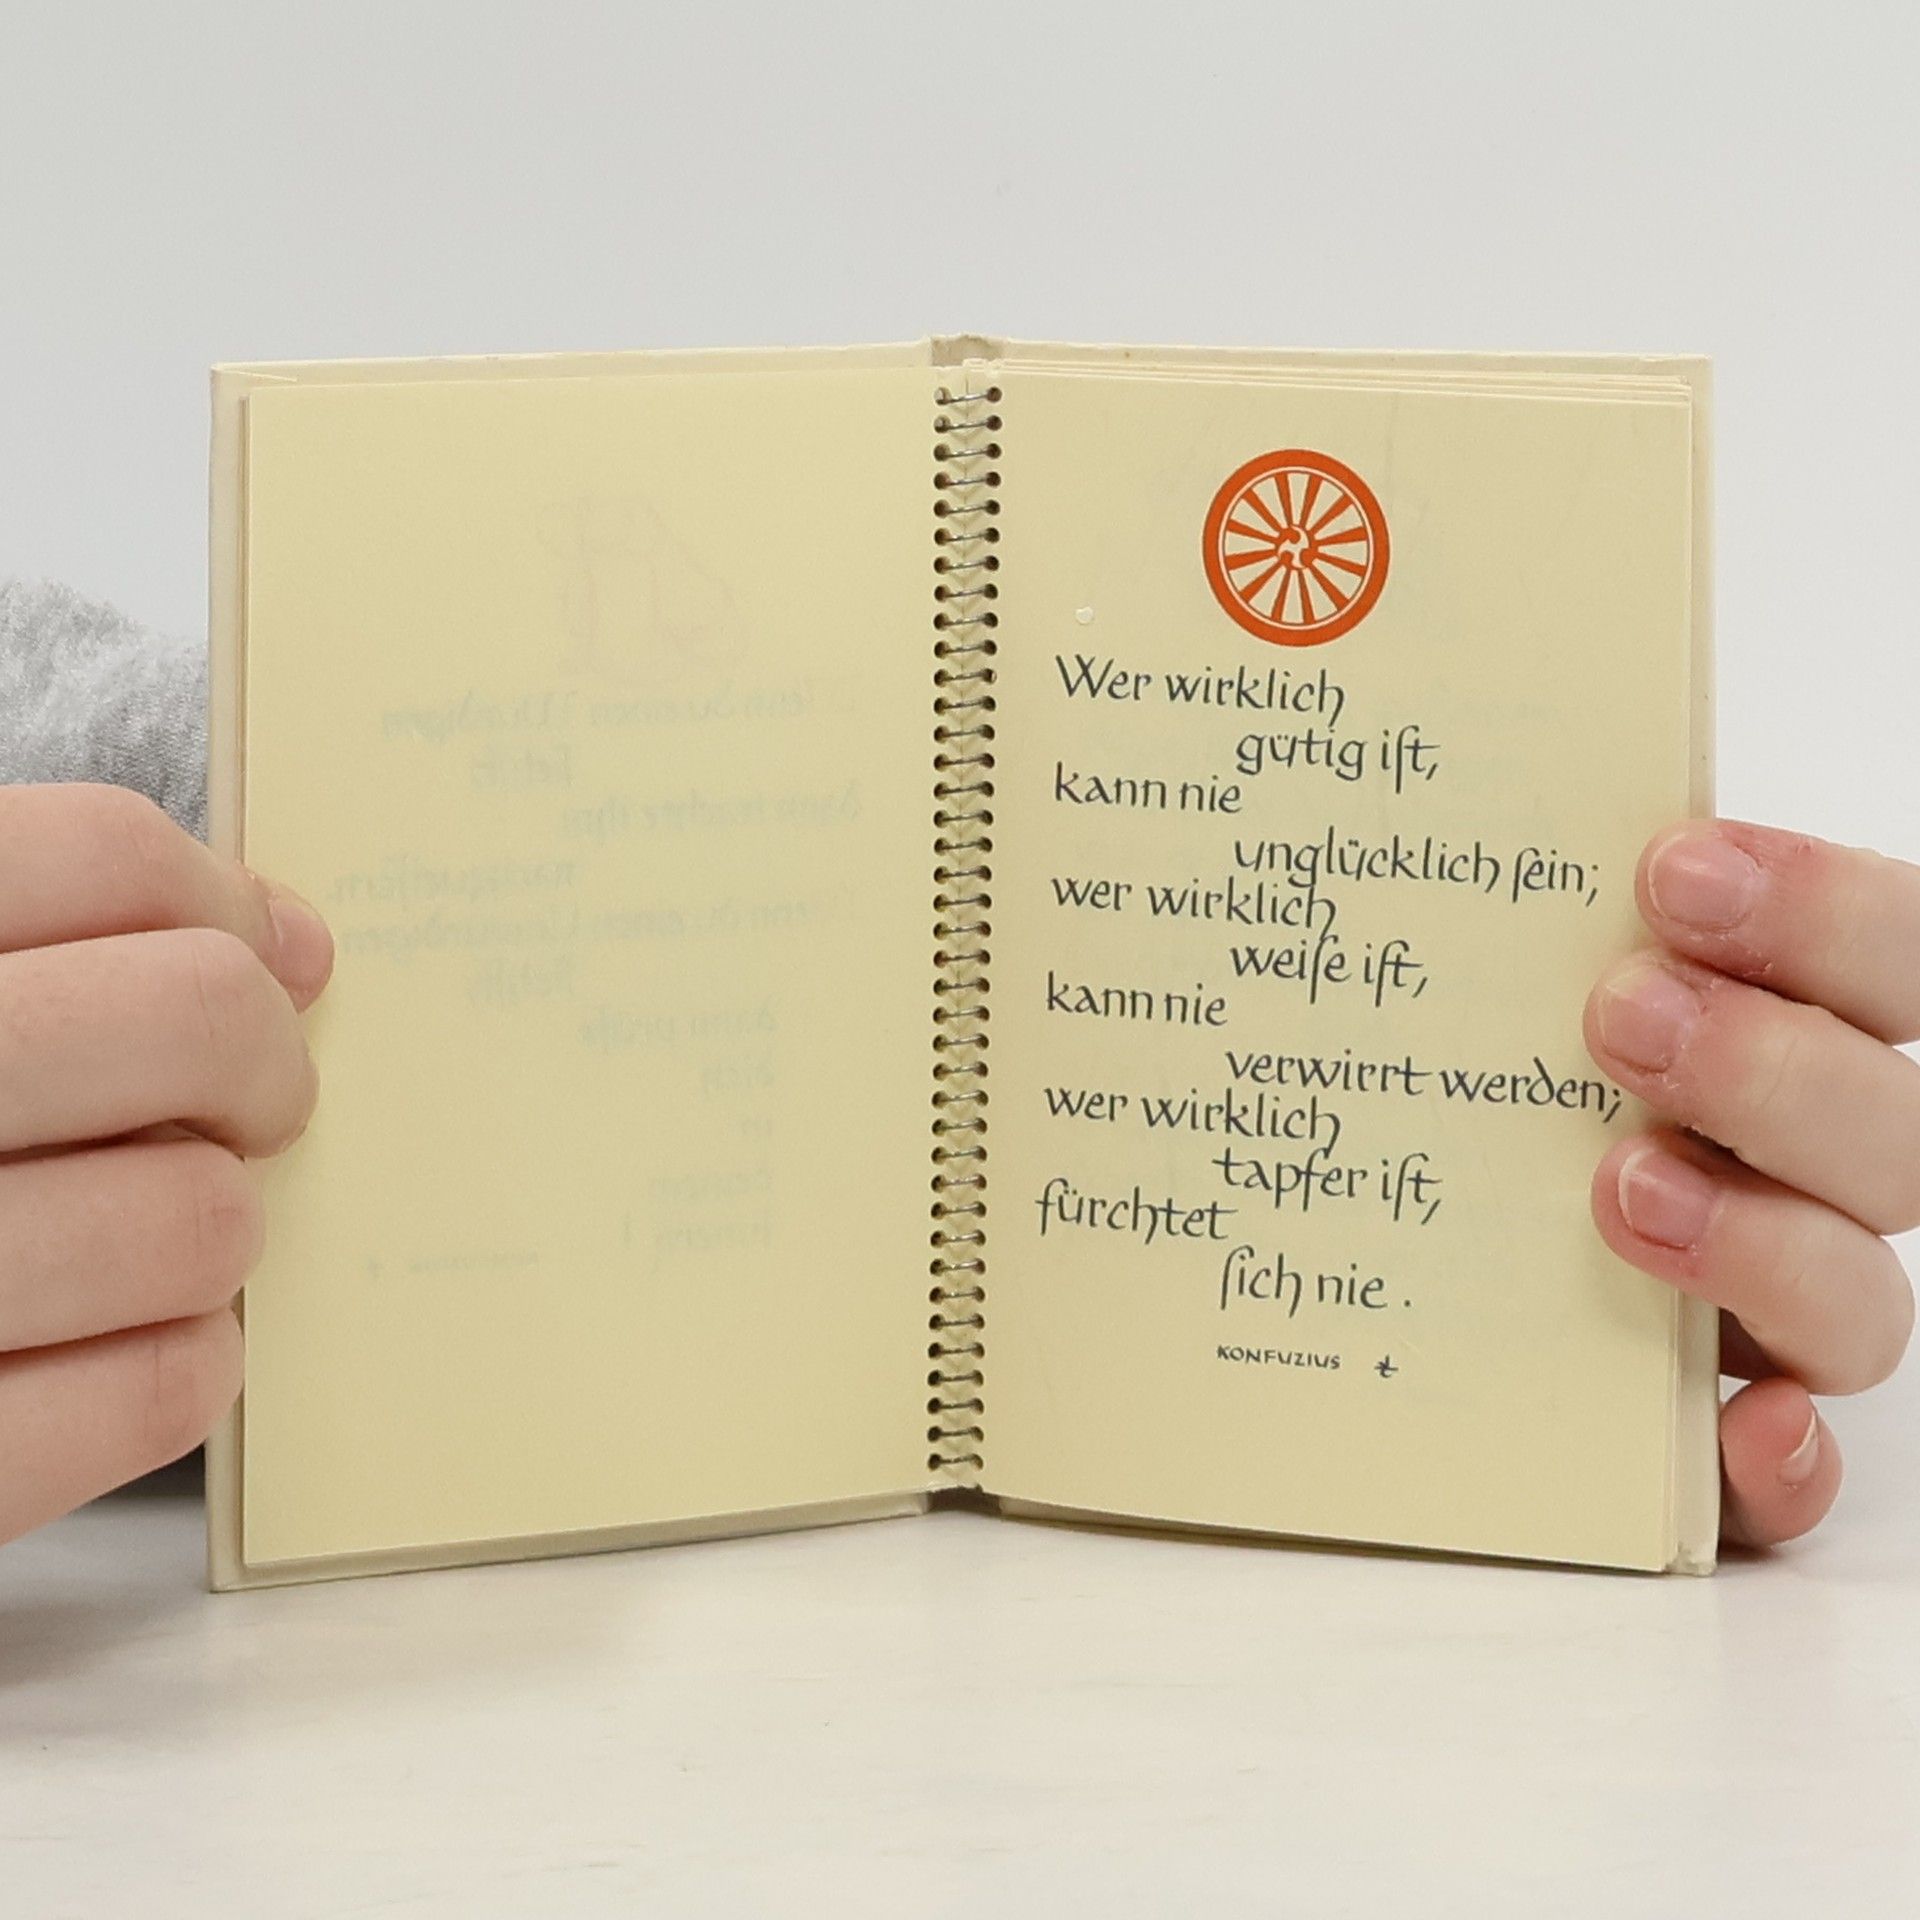 Wer wirklich
gütig iſt,
kann nie
unglücklich ſein;
wer wirklich
weiſe iſt,
kann nie
verwirrt werden;
wer wirklich
tapfer iſt,
fürchtet
ſich nie .
KONFUZIUS